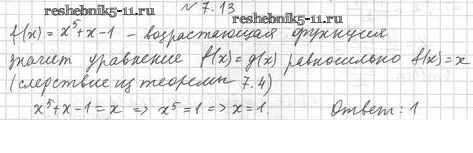 reshebnik5-11.ru
№ 7.13
reshebnik5-11.ru
f(x) = x⁵+x-1 - возрастающая функция
значит уравнение f(x)=g(x) равносильно f(x)=x
(следствие из теоремы 7.4)
x⁵+x-1=x => x⁵=1 => x=1. Ответ: 1